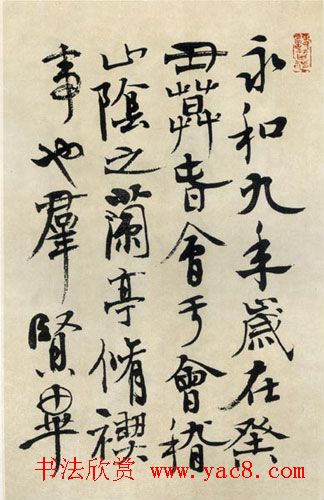 永和九年歲在癸
丑暮春會于會稽
山陰之蘭亭脩禊
事也羣賢畢
书法欣赏 www.yac8.com